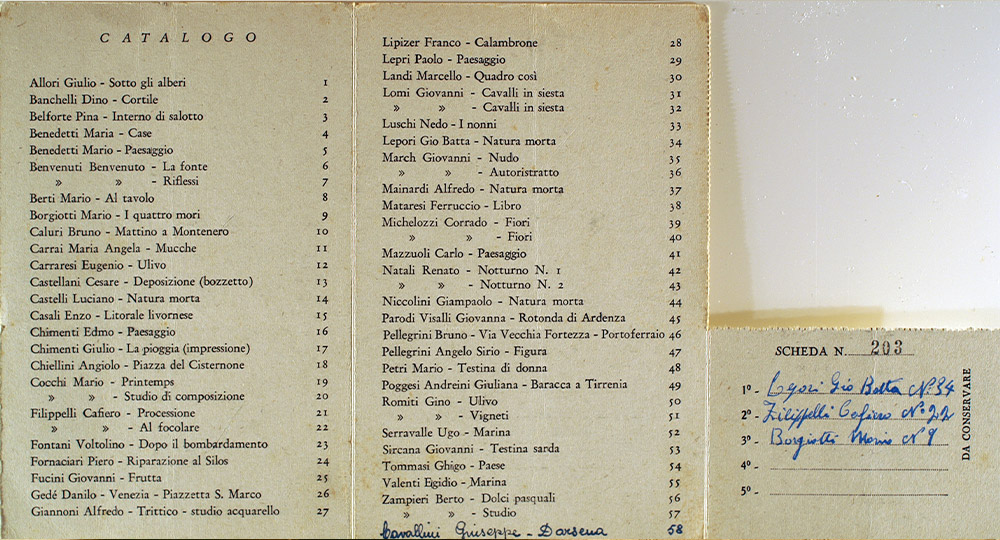 CATALOGO
Allori Giulio - Sotto gli alberi 1
Banchelli Dino - Cortile 2
Belforte Pina - Interno di salotto 3
Benedetti Maria - Case 4
Benedetti Mario - Paesaggio 5
Benvenuti Benvenuto - La fonte 6
» » - Riflessi 7
Berti Mario - Al tavolo 8
Borgiotti Mario - I quattro mori 9
Caluri Bruno - Mattino a Montenero 10
Carrai Maria Angela - Mucche 11
Carraresi Eugenio - Ulivo 12
Castellani Cesare - Deposizione (bozzetto) 13
Castelli Luciano - Natura morta 14
Casali Enzo - Litorale livornese 15
Chimenti Edmo - Paesaggio 16
Chimenti Giulio - La pioggia (impressione) 17
Chiellini Angiolo - Piazza del Cisternone 18
Cocchi Mario - Printemps 19
» » - Studio di composizione 20
Filippelli Cafiero - Processione 21
» » - Al focolare 22
Fontani Voltolino - Dopo il bombardamento 23
Fornaciari Piero - Riparazione al Silos 24
Fucini Giovanni - Frutta 25
Gedé Danilo - Venezia - Piazzetta S. Marco 26
Giannoni Alfredo - Trittico - studio acquarello 27
Lipizer Franco - Calambrone 28
Lepri Paolo - Paesaggio 29
Landi Marcello - Quadro così 30
Lomi Giovanni - Cavalli in siesta 31
» » - Cavalli in siesta 32
Luschi Nedo - I nonni 33
Lepori Gio Batta - Natura morta 34
March Giovanni - Nudo 35
» » - Autoristratto 36
Mainardi Alfredo - Natura morta 37
Mataresi Ferruccio - Libro 38
Michelozzi Corrado - Fiori 39
» » - Fiori 40
Mazzuoli Carlo - Paesaggio 41
Natali Renato - Notturno N. 1 42
» » - Notturno N. 2 43
Niccolini Giampaolo - Natura morta 44
Parodi Visalli Giovanna - Rotonda di Ardenza 45
Pellegrini Bruno - Via Vecchia Fortezza - Portoferraio 46
Pellegrini Angelo Sirio - Figura 47
Petri Mario - Testina di donna 48
Poggesi Andreini Giuliana - Baracca a Tirrenia 49
Romiti Gino - Ulivo 50
» » - Vigneti 51
Serravalle Ugo - Marina 52
Sircana Giovanni - Testina sarda 53
Tommasi Ghigo - Paese 54
Valenti Egidio - Marina 55
Zampieri Berto - Dolci pasquali 56
» » - Studio 57
Cavallini Giuseppe - Darsena 58
SCHEDA N. 203
1º - Gio Batta Nº 34
2º - Filippelli Cafiero Nº 22
3º - Borgiotti Mario Nº 9
4º -
5º -
DA CONSERVARE